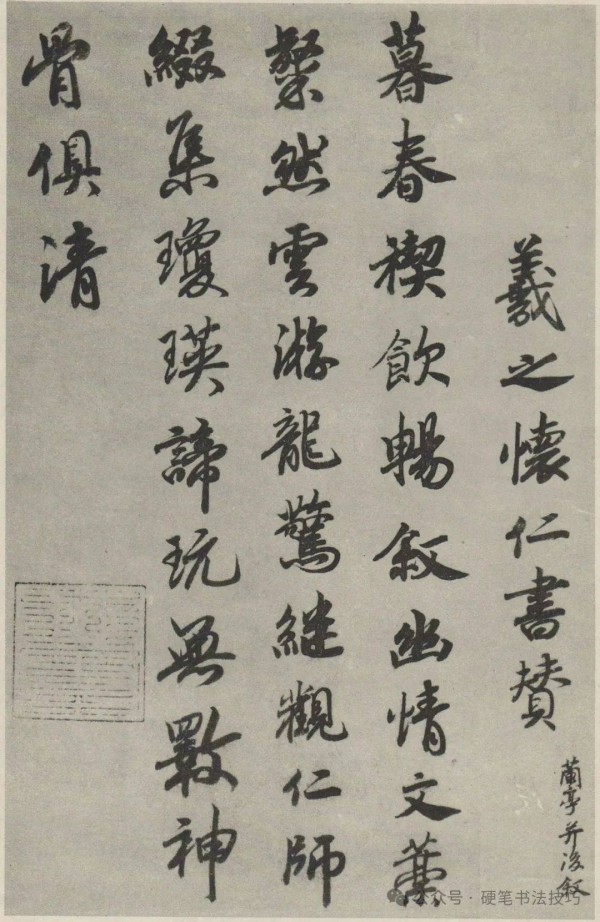 羲之懷仁書贊
蘭亭并後叙
暮春禊飲暢叙幽情文藻
粲然雲游龍驚繼觀仁師
綴集瓊瑛諦玩無斁神
骨俱清
公众号·硬笔书法技巧